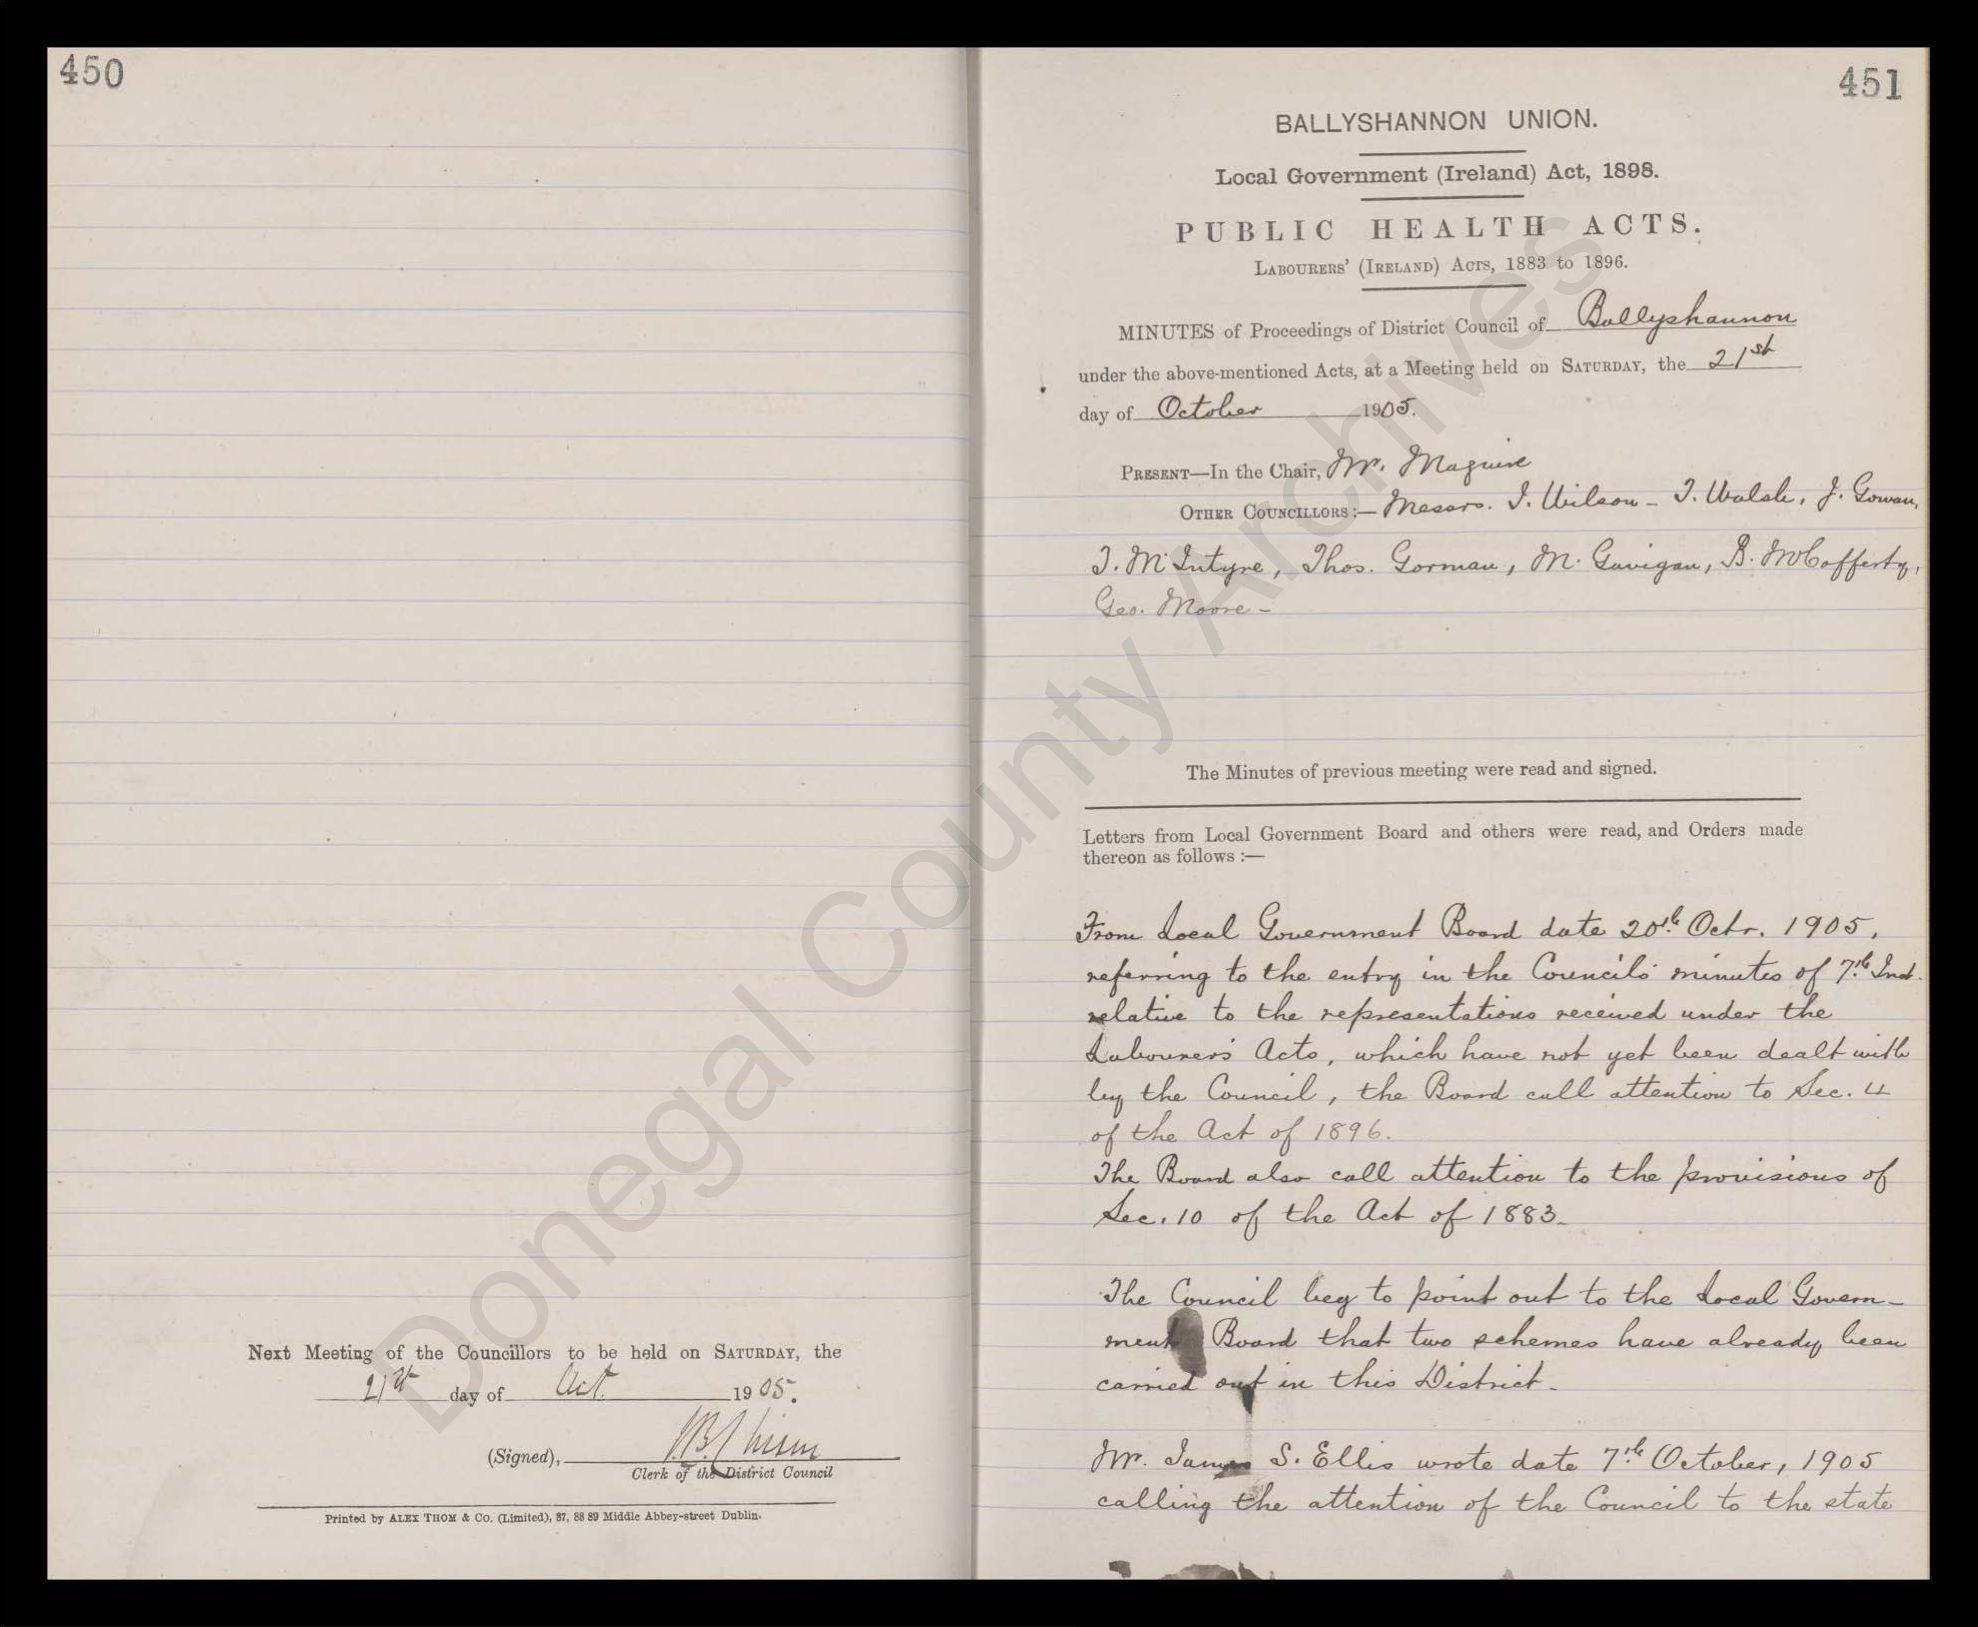 450
Next Meeting of the Councillors to be held on SATURDAY, the
21st day of Oct. 1905.
(Signed),
Clerk of the District Council
Printed by ALEX THOM & Co. (Limited), 87, 88 89 Middle Abbey-street Dublin.
451
BALLYSHANNON UNION.
Local Government (Ireland) Act, 1898.
PUBLIC HEALTH ACTS.
LABOURERS' (IRELAND) ACTS, 1883 to 1896.
MINUTES of Proceedings of District Council of Ballyshannon
under the above-mentioned Acts, at a Meeting held on SATURDAY, the 21st
day of October 1905.
PRESENT—In the Chair, Mr. Maguire
OTHER COUNCILLORS:— Messrs. I. Wilson - T. Walsh, J. Gowan,
T. McIntyre, Thos. Gorman, M. Gavigan, B. McCafferty,
Geo. Moore -
The Minutes of previous meeting were read and signed.
Letters from Local Government Board and others were read, and Orders made
thereon as follows :—
From Local Government Board date 20th Octr. 1905,
referring to the entry in the Council's minutes of 7th Inst.
relative to the representations received under the
Labourers' Acts, which have not yet been dealt with
by the Council, the Board call attention to Sec. 4
of the Act of 1896.
The Board also call attention to the provisions of
Sec. 10 of the Act of 1883.
The Council beg to point out to the Local Govern-
ment Board that two schemes have already been
carried out in this District.
Mr. James S. Ellis wrote date 7th October, 1905
calling the attention of the Council to the state
Donegal County Archives